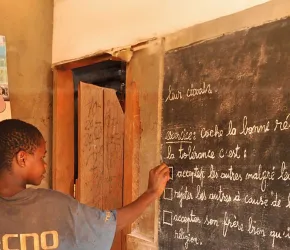 leur civols.
exercice: coche la bonne ré
la tolérance c'est:
accepter les autres malgré leu
rejeter les autres à cause de l
accepter son frère bien qu'i
religion.
CNO